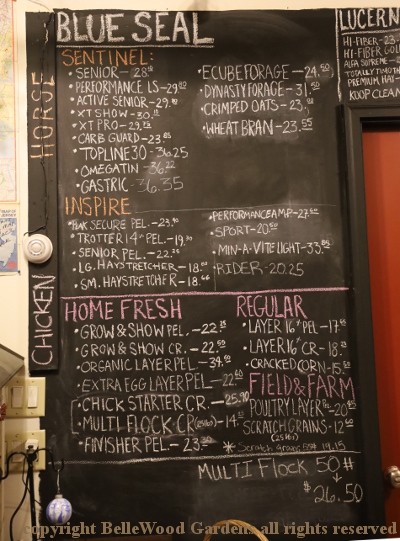 BLUE SEAL
HORSE
SENTINEL:
• SENIOR - 28.
• PERFORMANCE LS - 29.80
• ACTIVE SENIOR - 29.
• XT SHOW - 30.
• XT PRO - 29.75
• CARB GUARD - 23.
• TOPLINE 30 - 36.25
• OMEGATIN - 36.22
• GASTRIC - 36.35
• ECUBE FORAGE - 24.50
• DYNASTY FORAGE - 31.50
• CRIMPED OATS - 23.
• WHEAT BRAN - 23.55
INSPIRE
SECURE PEL. - 23.
• TROTTER 14% PEL - 19.
• SENIOR PEL. - 22.
• LG. HAYSTRETCHER - 18.
• SM. HAYSTRETCHER - 18.66
• PERFORMANCE AMP - 27.
• SPORT - 20.
• MIN-A-VITE LIGHT - 33.
• RIDER - 20.25
CHICKEN
HOME FRESH
• GROW & SHOW PEL. - 22.
• GROW & SHOW CR. - 22.
• ORGANIC LAYER PEL. - 34.
• EXTRA EGG LAYER PEL - 22.
• CHICK STARTER CR. - 25.
• MULTI FLOCK CR (25lbs) - 14.
• FINISHER PEL. - 23.
REGULAR
• LAYER 16% PEL - 17.
• LAYER 16% CR - 18.
• CRACKED CORN - 15.
FIELD & FARM
POULTRY LAYER - 20.
• SCRATCH GRAINS - 12.
(25 lbs)
* Scratch Grain 50# 19.15
MULTI FLOCK 50#
→ $26.50
LUCERN
HI-FIBER - 23.
HI-FIBER GOL
ALFA SUPREME -
TOTALLY TIMOTH
PREMIUM HA
KOOP CLEAN
copyright BelleWood Gardens, all rights reserved